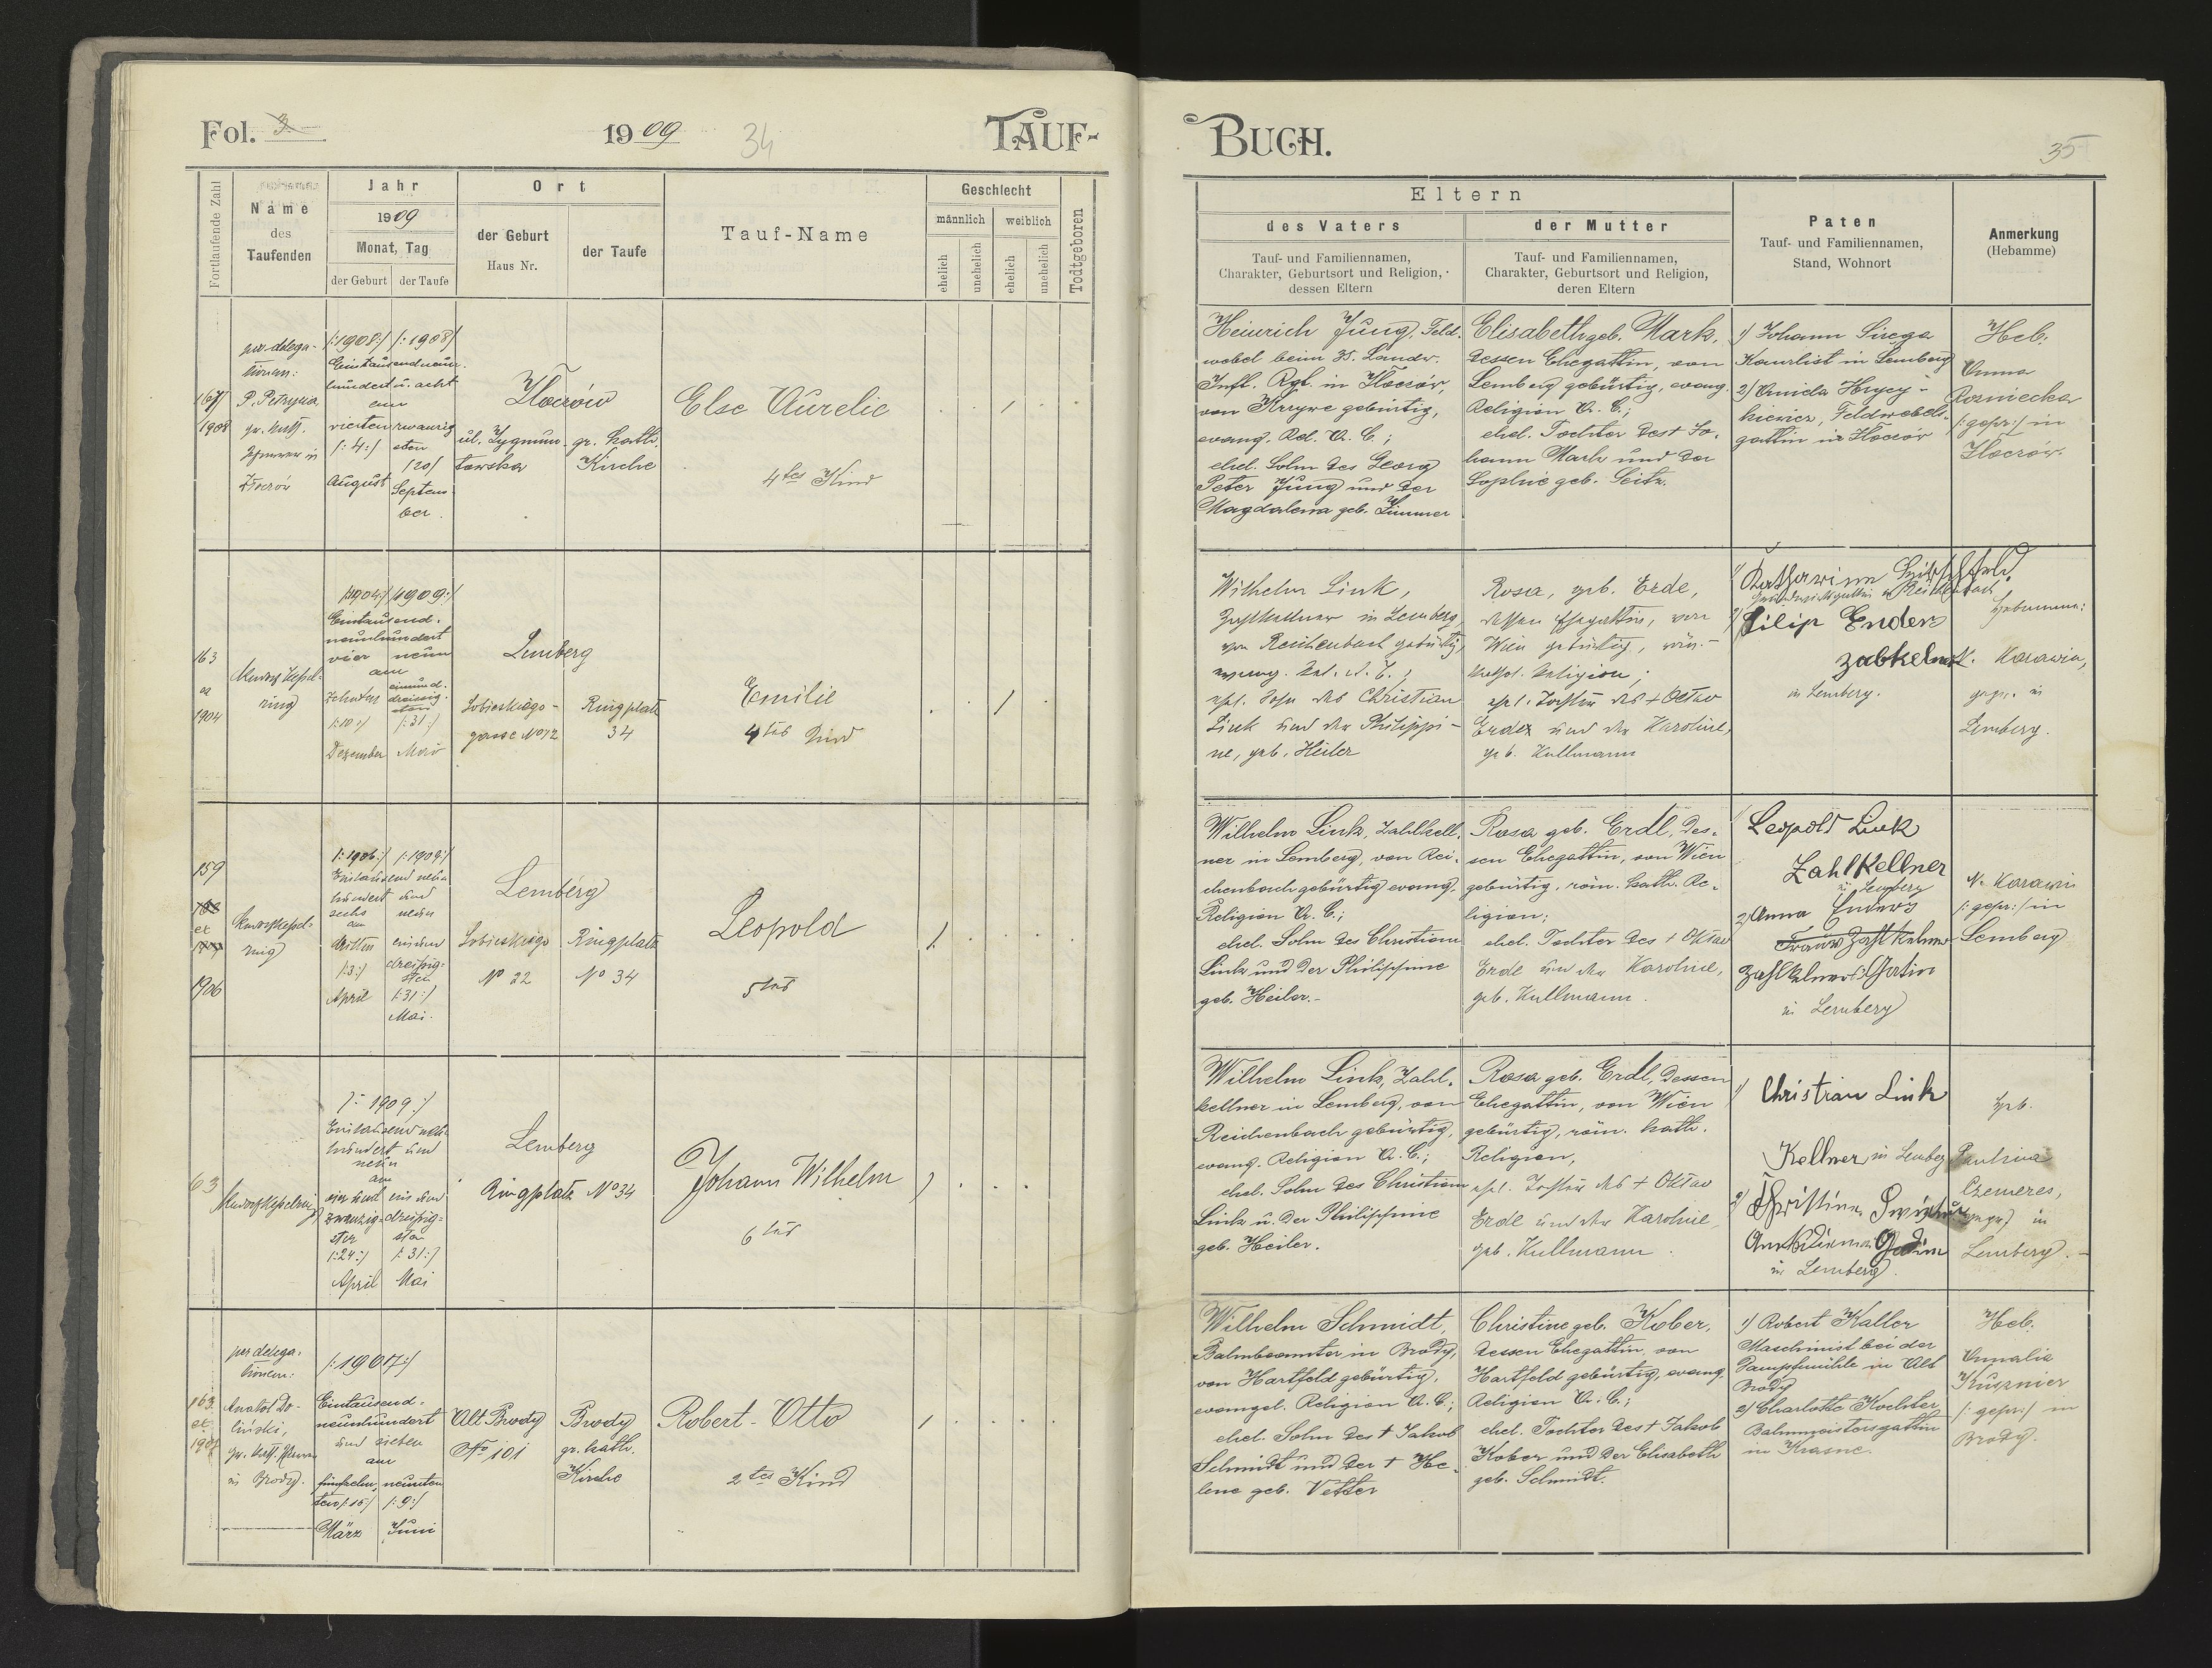 Fol. 3.
1909
34
TAUF-
Fortlaufende Zahl
Name
des
Taufenden
Jahr
1909
Monat, Tag
der Geburt
der Taufe
Ort
der Geburt
Haus Nr.
der Taufe
Tauf-Name
Geschlecht
männlich
weiblich
ehelich
unehelich
ehelich
unehelich
Todtgeboren
1908
per delega-
tionem:
in
Złoczów
/:1908:/ /:1908/
Eintausendneun-
hundert u. acht
am
vierten zwanzig
/:4:/ sten
/20/
August Septem-
ber
Złoczów
ul. Zygmun-
towska
gr. kath.
Kirche
Else Aurelie
4tes Kind
163
1904
/:1904:/ /1909:/
Eintausend-
neunhundert
vier neun
am
Zehnten einund-
dreissig-
sten
/:10:/ /:31:/
Dezember Mai
Lemberg
Sobieskiego-
gasse No 12
Ringplatz
34
Emilie
4tes Kind
159
et
1906
/:1906:/ /:1909:/
Eintausend neun
hundert und
sechs neun
am
dritten einund
dreißig-
sten
/:3:/
April /:31:/
Mai.
Lemberg
Sobieskiego
No 22
Ringplatz
No 34
Leopold
5tes
63
/:1909:/
Eintausend neun
hundert und
neun
am
vier und ein und
zwanzig- dreißig-
ster sten
/:24:/ /:31:/
April Mai
Lemberg
Ringplatz No 34
Johann Wilhelm
6tes
163
et
1907
per delega-
tionem:
Anatol Do-
liński,
in Brody.
/:1907:/
Eintausend-
neunhundert
und sieben
am
fünfzehn- neunten
ten /:15/ /:9:/
März Juni
Alt Brody
No 101
Brody
gr. kath.
Kirche
Robert Otto
2tes Kind
BUCH.
35
Eltern
des Vaters
Tauf- und Familiennamen,
Charakter, Geburtsort und Religion,
dessen Eltern
der Mutter
Tauf- und Familiennamen,
Charakter, Geburtsort und Religion,
deren Eltern
Paten
Tauf- und Familiennamen,
Stand, Wohnort
Anmerkung
(Hebamme)
Heinrich Jung, Feld-
webel beim 35. Landw.
Inft. Rgt. in Złoczów,
von gebürtig,
evang. Rel. A. C.;
ehel. Sohn des Georg
Peter Jung und der
Magdalena geb. Zimmer
Elisabeth geb. Mark,
dessen Ehegattin, von
Lemberg gebürtig, evang.
Religion A. C.;
ehel. Tochter des † Jo-
hann Mark und der
Sophie geb. Seitz.
1/ Johann
Kanzlist in Lemberg
2/
Feldwebels-
gattin in Złoczów
Heb.
Anna
Rozniecka
/:gepr:/ in
Złoczów.
Wilhelm Link,
Zahlkellner in Lemberg,
von Reichenbach gebürtig,
evang. Rel. A. C.;
ehl. Sohn des Christian
Link und der Philippi-
ne, geb. Heiler
Rosa, geb. Erde,
dessen Ehegattin, von
Wien gebürtig, röm.-
kathol. Religion;
ehl. Tochter des † Octav
Erde und der Karoline,
geb. Kullmann
1/ Katharina
2/ Filip Enders
zahlkelner
in Lemberg.
Hebamme:
N. Karawin,
gepr. in
Lemberg.
Wilhelm Link, Zahlkell-
ner in Lemberg, von Rei-
chenbach gebürtig evang.
Religion A. C.;
ehel. Sohn des Christian
Link und der Philippine
geb. Heiler.-
Rosa geb. Erdl, des-
sen Ehegattin, von Wien
gebürtig, röm. kath. Re-
ligion;
ehel. Tochter des † Oktav
Erde und der Karoline,
geb. Kullmann.
1/ Leopold Link
Zahlkellner
in Lemberg
2/ Anna Enders
Zahlkelners Gatin
in Lemberg
N. Karawin
/:gepr:/ in
Lemberg
Wilhelm Link, Zahl-
kellner in Lemberg, von
Reichenbach gebürtig,
evang. Religion A. C.;
ehel. Sohn des Christian
Link u. der Philippine
geb. Heiler.
Rosa geb. Erdl, dessen
Ehegattin, von Wien
gebürtig, röm. kath.
Religion,
ehl. Tochter des † Oktav
Erde und der Karoline,
geb. Kullmann.
1/ Christian Link
Kellner in Lemberg
2/ Christine
in Lemberg.
Heb.
Paulina
in
Lemberg.
Wilhelm Schmidt,
Bahnbeamter in Brody,
von Hartfeld gebürtig,
evangel. Religion A. C.;
ehel. Sohn des † Jakob
Schmidt und der † He-
lene geb. Vetter
Christine geb. Kober,
dessen Ehegattin, von
Hartfeld gebürtig, evang.
Religion A. C.;
ehel. Tochter des † Jakob
Kober und der Elisabeth
geb. Schmidt.
1/ Robert Kaller
Maschinist bei der
Dampfmühle in Alt
Brody
2/ Charlotte Kochter,
Bahnmeistersgattin
in Krasne.
Heb.
Annalia
Kusznier
/:gepr:/ in
Brody.